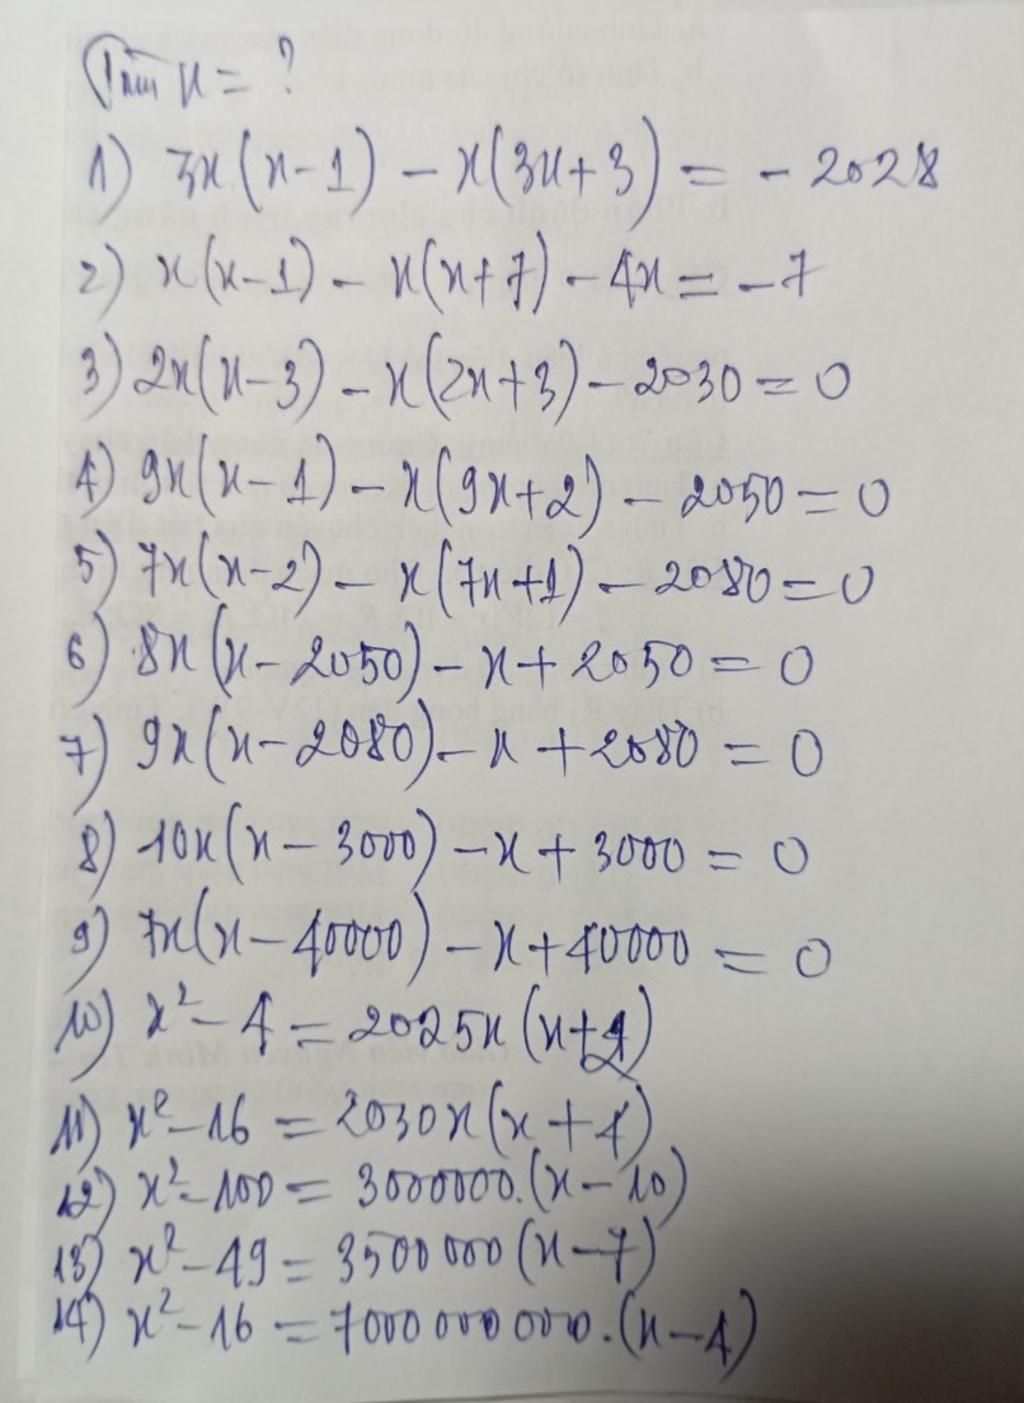 Tìm x = ?
1) 3x(x-1) - x(3x+3) = - 2028
2) x(x-1) - x(x+7) - 4x = -7
3) 2x(x-3) - x(2x+3) - 2030 = 0
4) 9x(x-1) - x(9x+2) - 2050 = 0
5) 7x(x-2) - x(7x+1) - 2080 = 0
6) 8x(x-2050) - x + 2050 = 0
7) 9x(x-2080) - x + 2080 = 0
8) 10x(x-3000) - x + 3000 = 0
9) 7x(x-40000) - x + 40000 = 0
10) x² - 4 = 2025x(x+2)
11) x² - 16 = 2030x(x+4)
12) x² - 100 = 3000000.(x-10)
13) x² - 49 = 3500 000(x-7)
14) x² - 16 = 7000 000 000.(x-4)